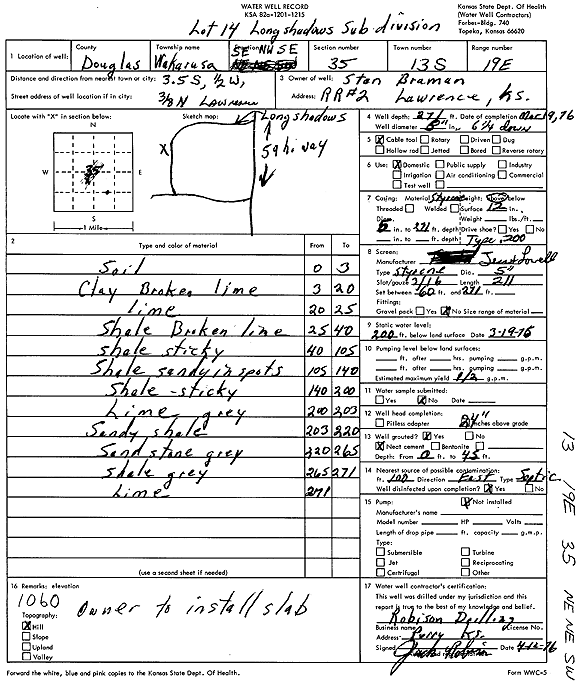 WATER WELL RECORD
KSA 82a-1201-1215
Kansas State Dept. Of Health
(Water Well Contractors)
Forbes-Bldg. 740
Topeka, Kansas 66620
Lot 14 Longshadows Subdivision
1 Location of well:
County
Douglas
Township name
Wakarusa
Fraction
SE NW SE
Section number
35
Town number
13S
Range number
19E
Distance and direction from nearest town or city: 3.5 S, 1/2 W,
Street address of well location if in city: 3/8 N Lawrence
3 Owner of well: Stan Braman
Address: RR#2 Lawrence, Ks.
Locate with "X" in section below:
N
W
35
E
S
1 Mile
Sketch map:
Longshadows
X
59 hiway
4 Well depth: 271 ft. Date of completion Mar 19, 76
Well diameter 8" in. 6 1/4 down
5 Cable tool Rotary Driven Dug
Hollow rod Jetted Bored Reverse rotary
6 Use: Domestic Public supply Industry
Irrigation Air conditioning Commercial
Test well
7 Casing: Material Styrene Height: Above/below
Threaded Welded Surface 12 in.
Diam. Weight lbs./ft.
in. to 271 ft. depth Drive shoe? Yes No
in. to ft. depth Type: 200
2 Type and color of material From To
Soil 0 3
Clay Broken lime 3 20
lime 20 25
Shale Broken lime 25 40
shale sticky 40 105
Shale sandy in spots 105 140
Shale - sticky 140 200
Lime grey 200 203
Sandy shale 203 220
Sand stone grey 220 265
shale grey 265 271
Lime 271
(use a second sheet if needed)
8 Screen:
Manufacturer Jess Lowell
Type Styrene Dia. 5"
Slot/gauze 3/16 Length 211
Set between 60 ft. and 271 ft.
Fittings:
Gravel pack Yes No Size range of material
9 Static water level:
200 ft. below land surface Date 3-19-76
10 Pumping level below land surfaces:
ft. after hrs. pumping g.p.m.
ft. after hrs. pumping g.p.m.
Estimated maximum yield 1/2 g.p.m.
11 Water sample submitted:
Yes No Date
12 Well head completion:
Pitless adapter 24" Inches above grade
13 Well grouted? Yes No
Neat cement Bentonite
Depth: From 0 ft. to 45 ft.
14 Nearest source of possible contamination:
ft. 100 Direction East Type Septic
Well disinfected upon completion? Yes No
15 Pump: Not installed
Manufacturer's name
Model number HP Volts
Length of drop pipe ft. capacity g.m.p.
Type:
Submersible Turbine
Jet Reciprocating
Centrifugal Other
16 Remarks: elevation
1060
Owner to install slab
Topography:
Hill
Slope
Upland
Valley
17 Water well contractor's certification:
This well was drilled under my jurisdiction and this
report is true to the best of my knowledge and belief.
Robison Drilling
Business name License No.
Address Perry Ks.
Signed Jack Robison Date 4-12-76
Forward the white, blue and pink copies to the Kansas State Dept. Of Health.
Form WWC-5
13 19E 35 NE NE SW